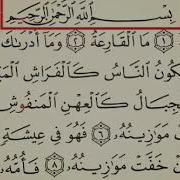 بِسْمِ ٱللَّهِ ٱلرَّحْمَٰنِ ٱلرَّحِيمِ
١ مَا ٱلْقَارِعَةُ ٢ وَمَآ أَدْرَىٰكَ
كُونُ ٱلنَّاسُ كَٱلْفَرَاشِ ٱلْمَ
جِبَالُ كَٱلْعِهْنِ ٱلْمَنفُوشِ
مَوَٰزِينُهُۥ ٦ فَهُوَ فِى عِيشَةٍ
نْ خَفَّتْ مَوَٰزِينُهُۥ ٨ فَأُمُّهُۥ